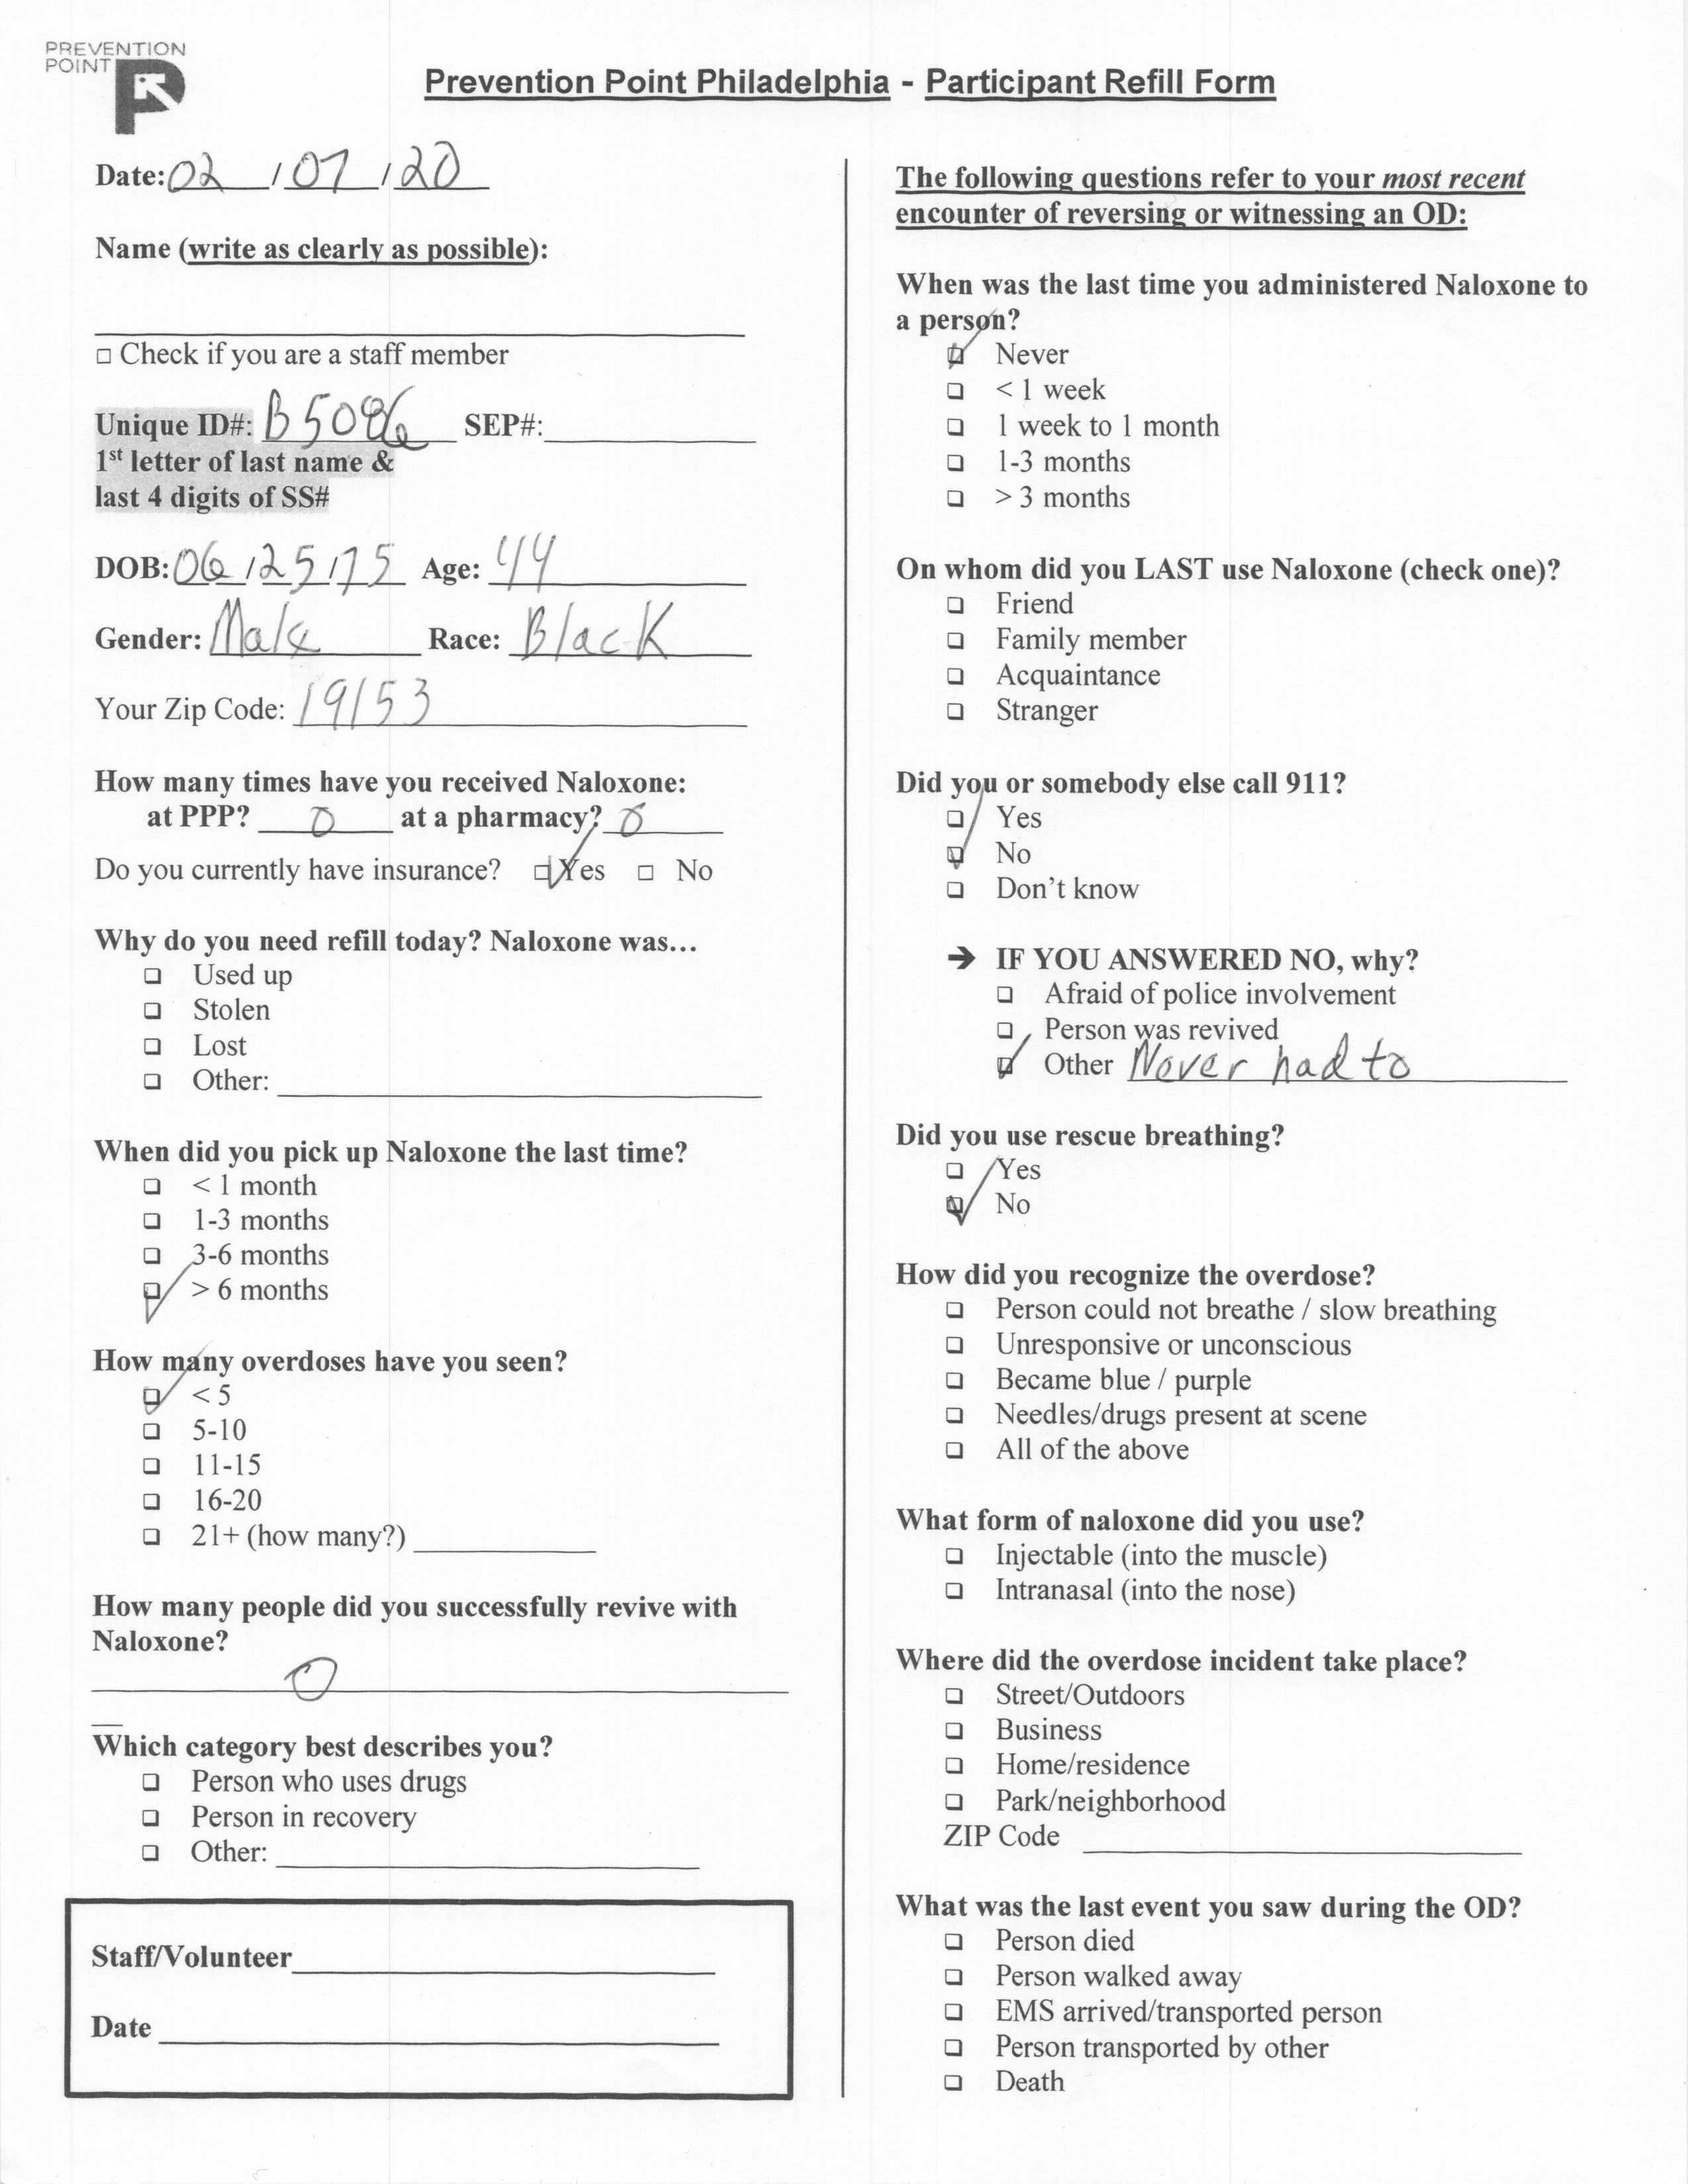 PREVENTION
POINT
Prevention Point Philadelphia - Participant Refill Form
Date: 02 / 07 / 20
Name (write as clearly as possible):
□ Check if you are a staff member
Unique ID#: B5086 SEP#:
1st letter of last name &
last 4 digits of SS#
DOB: 06 / 25 / 75 Age: 44
Gender: Male Race: Black
Your Zip Code: 19153
How many times have you received Naloxone:
at PPP? 0 at a pharmacy? 0
Do you currently have insurance? ☑ Yes □ No
Why do you need refill today? Naloxone was...
❏ Used up
❏ Stolen
❏ Lost
❏ Other:
When did you pick up Naloxone the last time?
❏ < 1 month
❏ 1-3 months
❏ 3-6 months
☑ > 6 months
How many overdoses have you seen?
☑ < 5
❏ 5-10
❏ 11-15
❏ 16-20
❏ 21+ (how many?)
How many people did you successfully revive with
Naloxone?
0
Which category best describes you?
❏ Person who uses drugs
❏ Person in recovery
❏ Other:
Staff/Volunteer
Date
The following questions refer to your most recent
encounter of reversing or witnessing an OD:
When was the last time you administered Naloxone to
a person?
☑ Never
❏ < 1 week
❏ 1 week to 1 month
❏ 1-3 months
❏ > 3 months
On whom did you LAST use Naloxone (check one)?
❏ Friend
❏ Family member
❏ Acquaintance
❏ Stranger
Did you or somebody else call 911?
❏ Yes
☑ No
❏ Don't know
➔ IF YOU ANSWERED NO, why?
❏ Afraid of police involvement
❏ Person was revived
☑ Other Never had to
Did you use rescue breathing?
❏ Yes
☑ No
How did you recognize the overdose?
❏ Person could not breathe / slow breathing
❏ Unresponsive or unconscious
❏ Became blue / purple
❏ Needles/drugs present at scene
❏ All of the above
What form of naloxone did you use?
❏ Injectable (into the muscle)
❏ Intranasal (into the nose)
Where did the overdose incident take place?
❏ Street/Outdoors
❏ Business
❏ Home/residence
❏ Park/neighborhood
ZIP Code
What was the last event you saw during the OD?
❏ Person died
❏ Person walked away
❏ EMS arrived/transported person
❏ Person transported by other
❏ Death